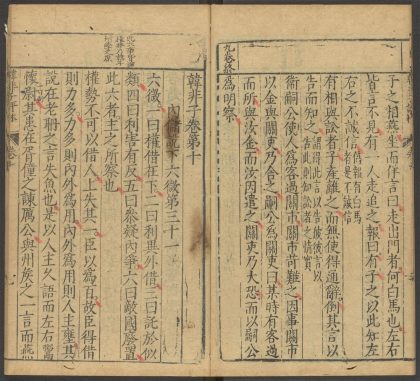 子之相燕坐而佯言曰走出門者何白馬也左右
皆言不見有一人走追之報曰有子之以此知左
右之不誠信
僞報有白馬
者是不誠信
有相與訟者子產離之而無使得通辭倒其言以
告而知之
謂得此言以告彼彼言以
告此則知訟者之情實
衞嗣公使人爲客過關市關市苛難之因事關市
以金與關吏乃舍之嗣公爲關吏曰某時有客過
而所與汝金而汝因遣之關吏乃大恐而以嗣公
爲明察
九卷終
韓非子卷第十
內儲說下六微第三十一
六微一曰權借在下二曰利異外借三曰託於似
類四曰利害有反五曰參疑內爭六曰敵國廢置
此六者主之所察也
權勢不可以借人上失其一臣以爲百故臣得借
則力多力多則內外爲用內外爲用則人主壅其
說在老聃之言失魚也是以人主久語而左右鬻
懷㕞其患在胥僮之諫厲公與州侯之一言而燕